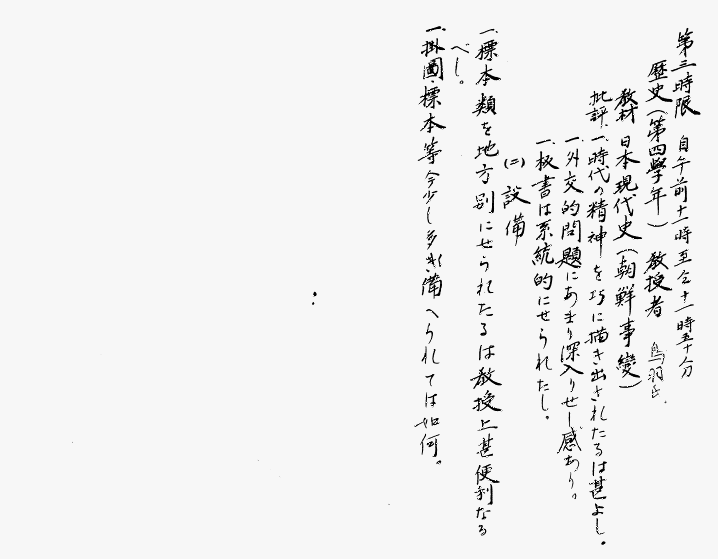 第三時限 自午前十一時至仝十一時五十分
歴史(第四學年) 教授者 鳥羽氏.
教材 日本現代史(朝鮮事變)
批評.一.時代の精神を巧に描き出されたるは甚よし。
一.外交的問題にあまり深入りせし感あり。
一.板書は系統的にせられたし。
(二)設備
一.標本類を地方別にせられたるは教授上甚便利なる
べし。
一.掛圖.標本等今少し多く備へられては如何。